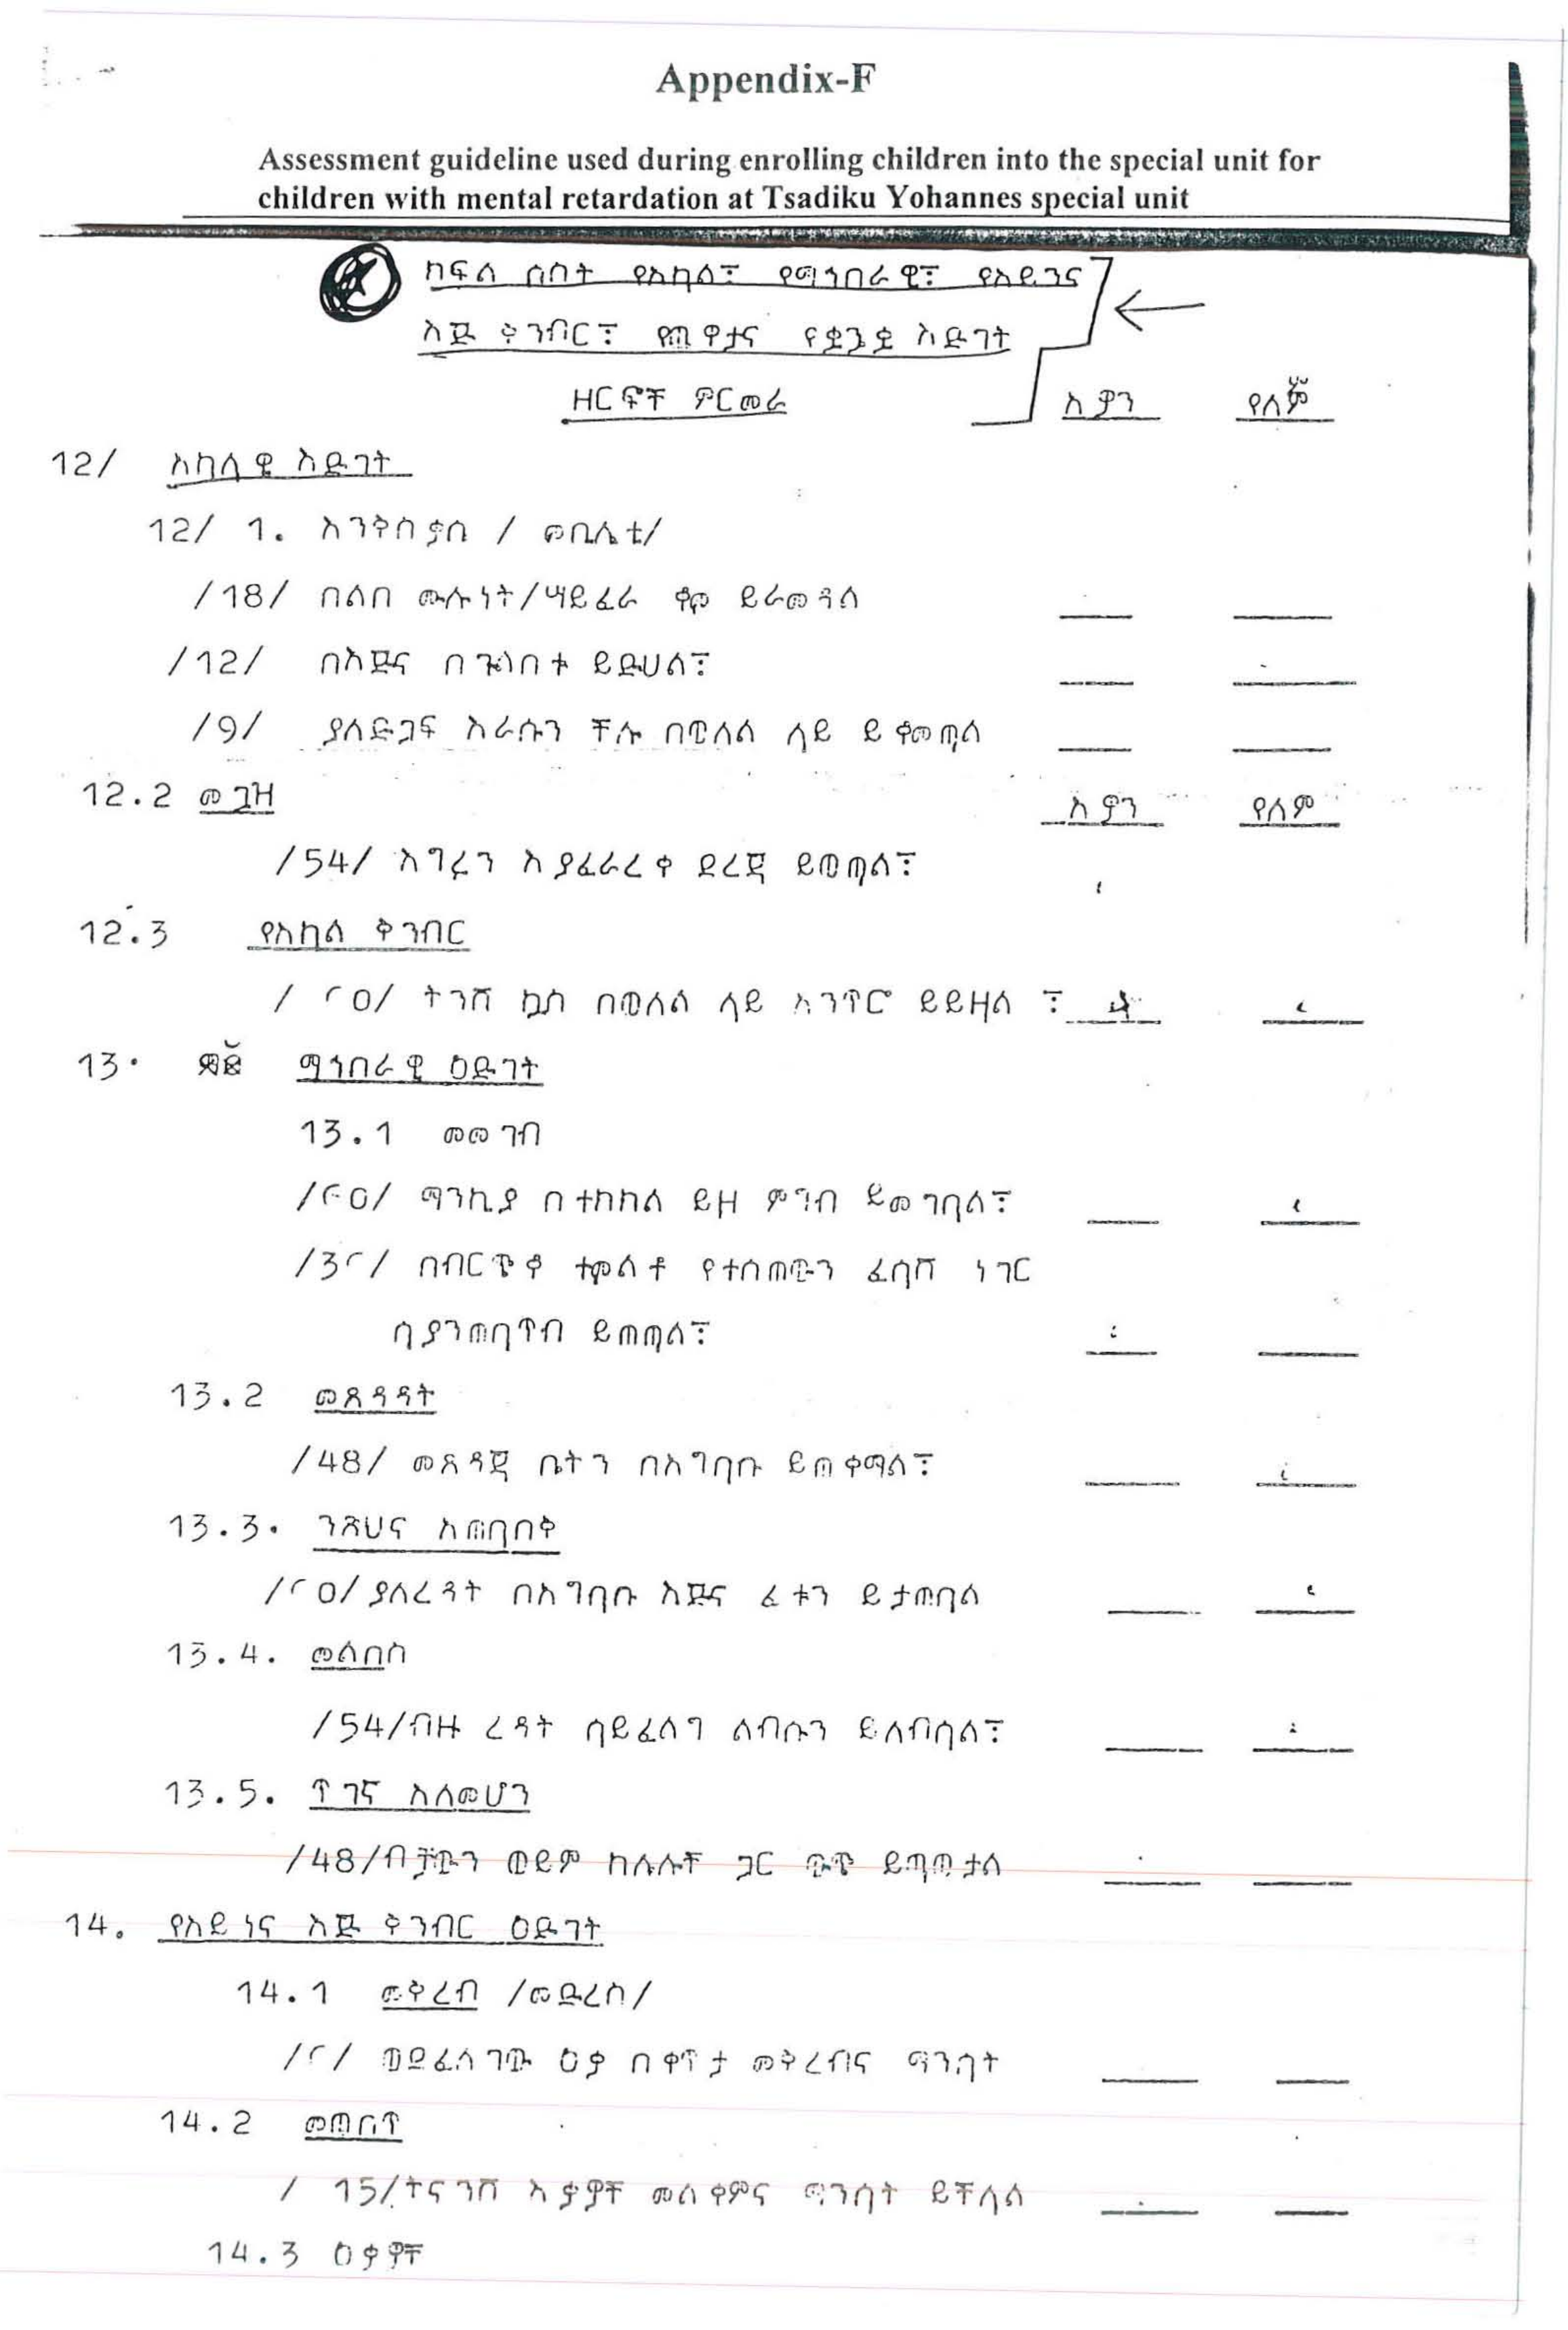 Appendix-F
Assessment guideline used during enrolling children into the special unit for
children with mental retardation at Tsadiku Yohannes special unit
ክፍል ሶስት የአካል፣ የማኅበራዊ፣ የአይንና
እጅ ቅንብር፣ የጨዋታና የቋንቋ እድገት
ዘርፎች ምርመራ አዎን የለም
12/ አካላዊ እድገት
12/ 1. እንቅስቃሴ / ሞቢሊቲ/
/18/ በልበ ሙሉነት/ሣይፈራ ቆሞ ይራመዳል
/12/ በእጅና በጉልበቱ ይድሀል፣
/9/ ያለድጋፍ እራሱን ችሎ በወለል ላይ ይቀመጣል
12.2 መጓዝ አዎን የለም
/54/ እግሩን እያፈራረቀ ደረጃ ይወጣል፣
12.3 የአካል ቅንብር
/ 0/ ትንሽ ኳስ በወለል ላይ አንጥሮ ይይዛል ፣
13. ማኅበራዊ ዕድገት
13.1 መመገብ
/ 0/ ማንኪያ በተከከለ ይዞ ምግብ ይመገባል፣
/3 / በብርጭቆ ተሞልቶ የተሰጠውን ፈሳሽ ነገር
ሳያንጠባጥብ ይጠጣል፣
13.2 መጸዳዳት
/48/ መጸዳጃ ቤትን በአግባቡ ይጠቀማል፣
13.3. ንጽህና አጠባበቅ
/ 0/ያለረዳት በአግባቡ እጅና ፊቱን ይታጠባል
13.4. መልበስ
/54/ብዙ ረዳት ሳይፈልግ ልብሱን ይለብሳል፣
13.5. ጥገኛ አለመሆን
/48/ብቻውን ወይም ከሌሎች ጋር ይጫወታል
14. የአይነና እጅ ቅንብር ዕድገት
14.1 መቅረብ /መድረስ/
/ / ወደፈለገው ዕቃ በቀጥታ መቅረብና ማንሳት
14.2
/ 15/ትናንሽ እቃዎች መልቀምና ማንሳት ይችላል
14.3 ዕቃዎች